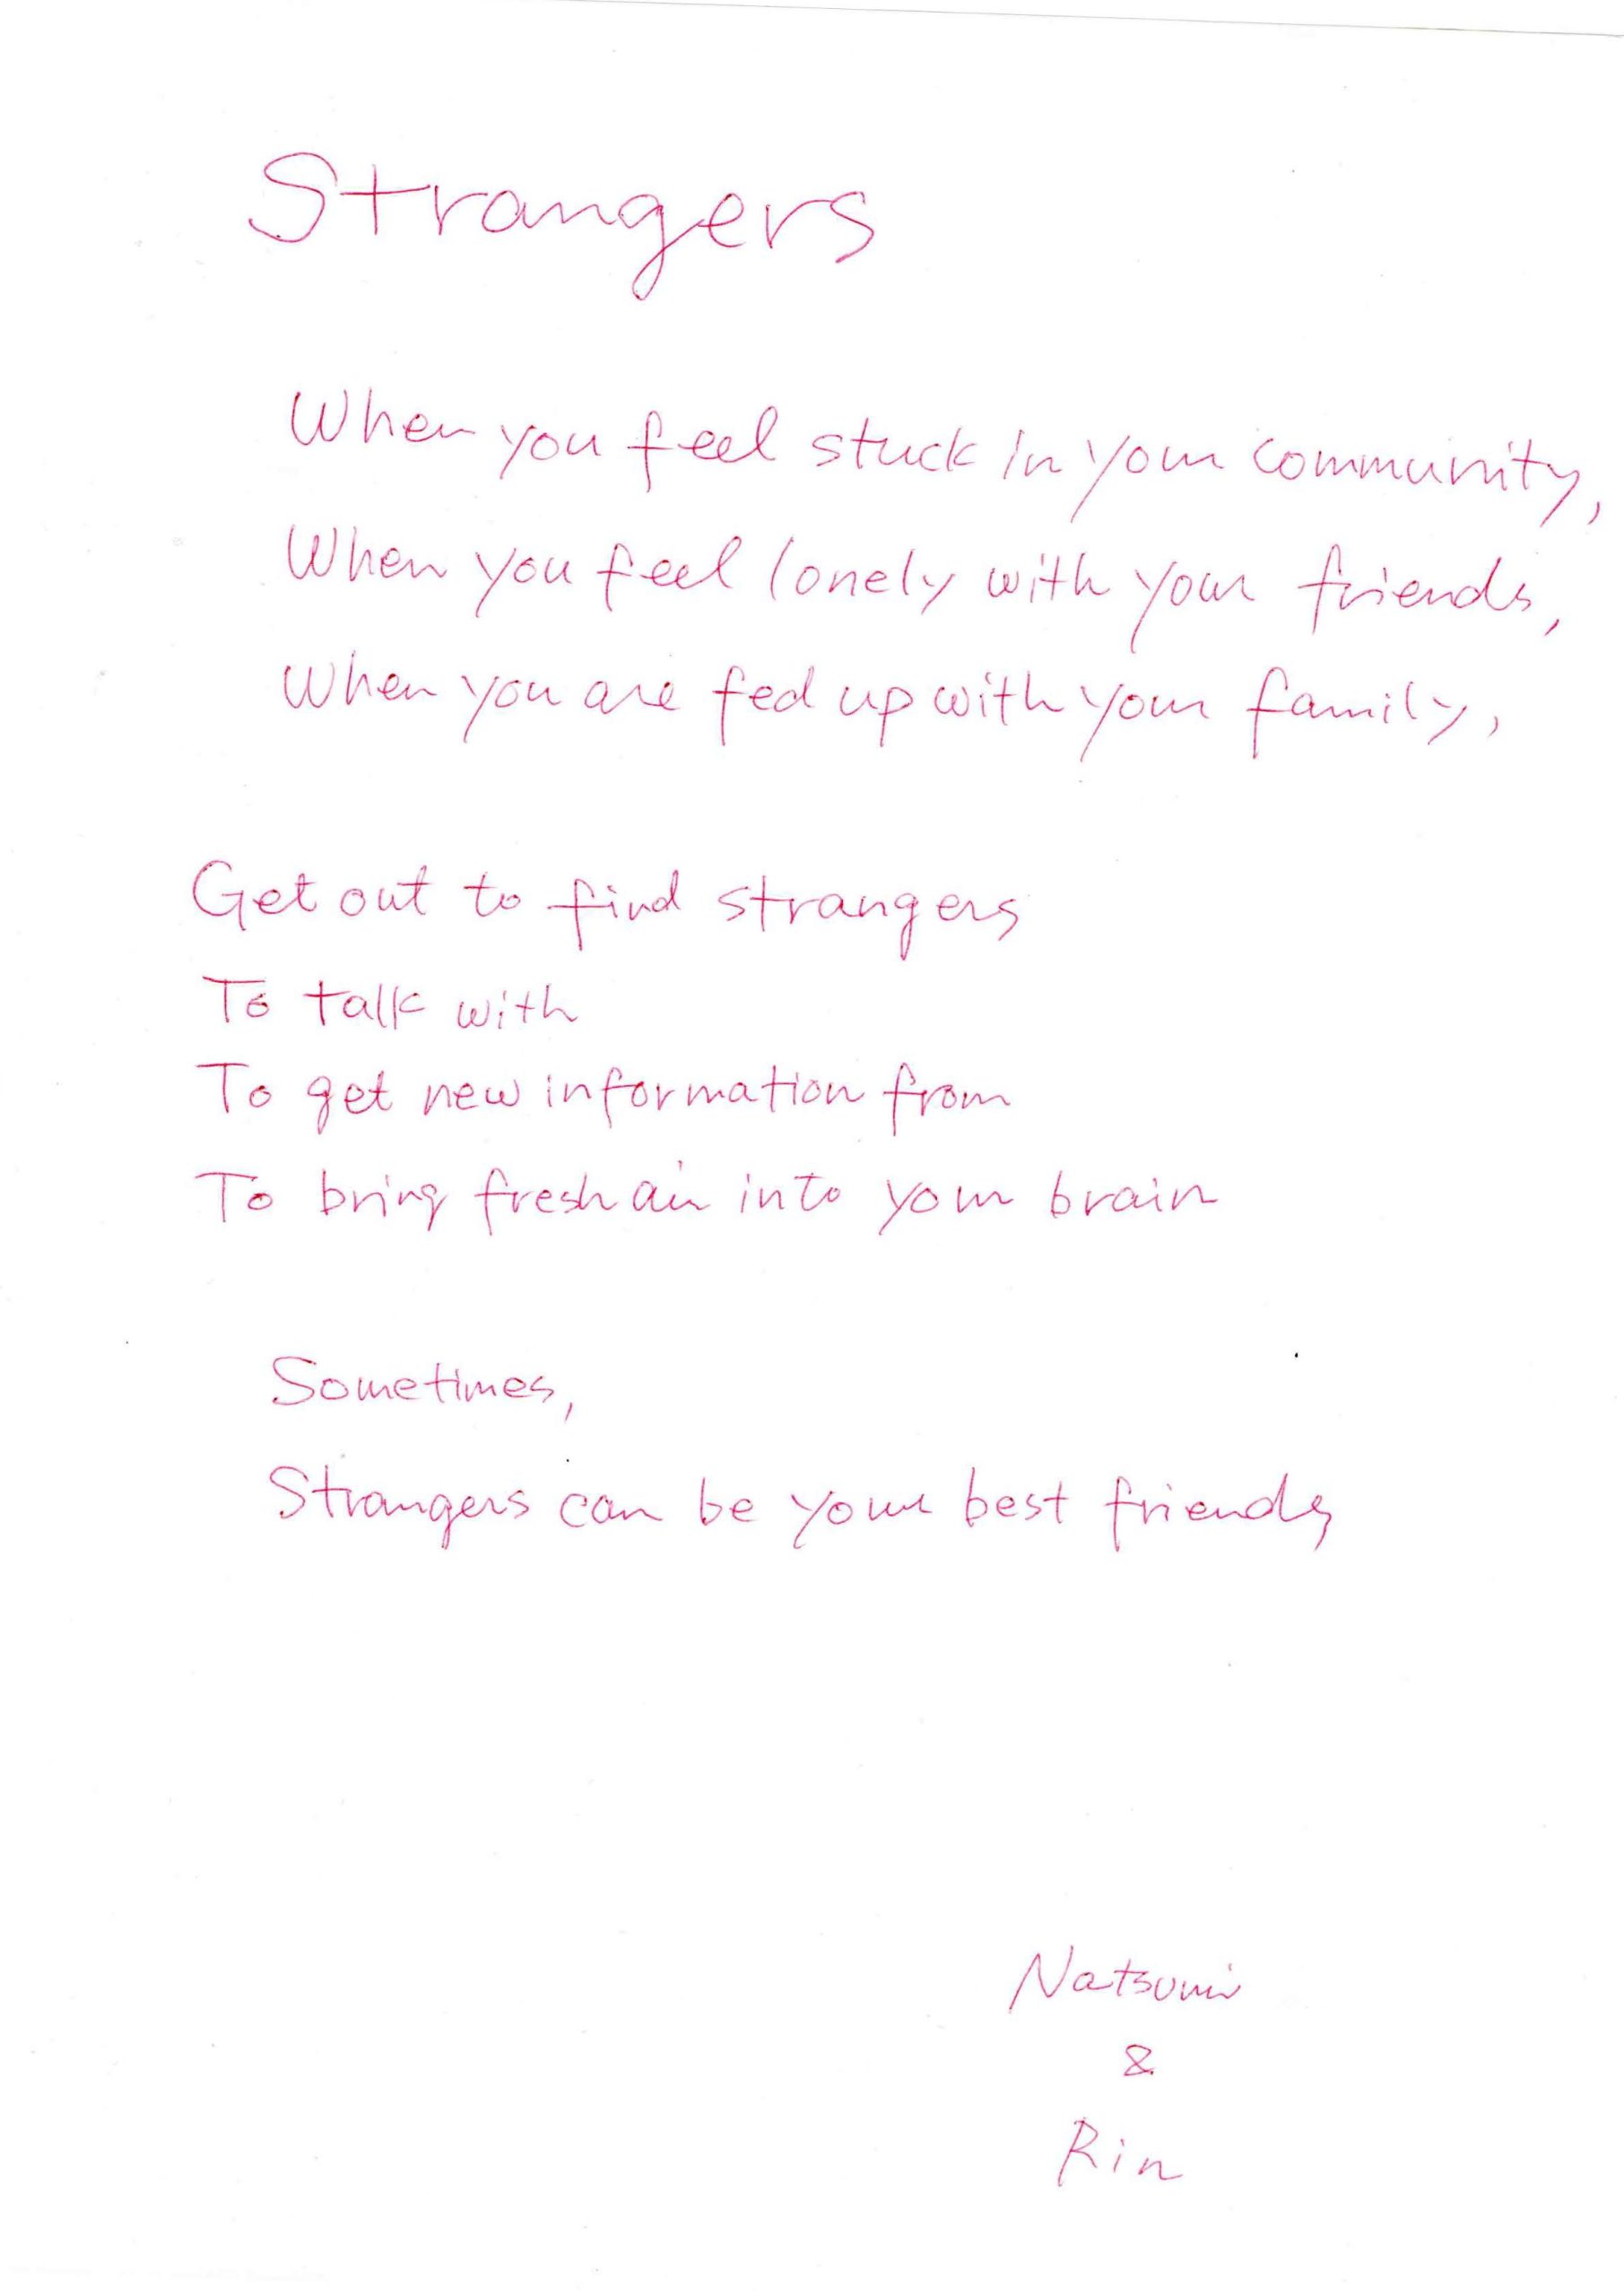 Strangers
When you feel stuck in your community,
When you feel lonely with your friends,
When you are fed up with your family,
Get out to find strangers
To talk with
To get new information from
To bring fresh air into your brain
Sometimes,
Strangers can be your best friends
Natsumi
&
Rin